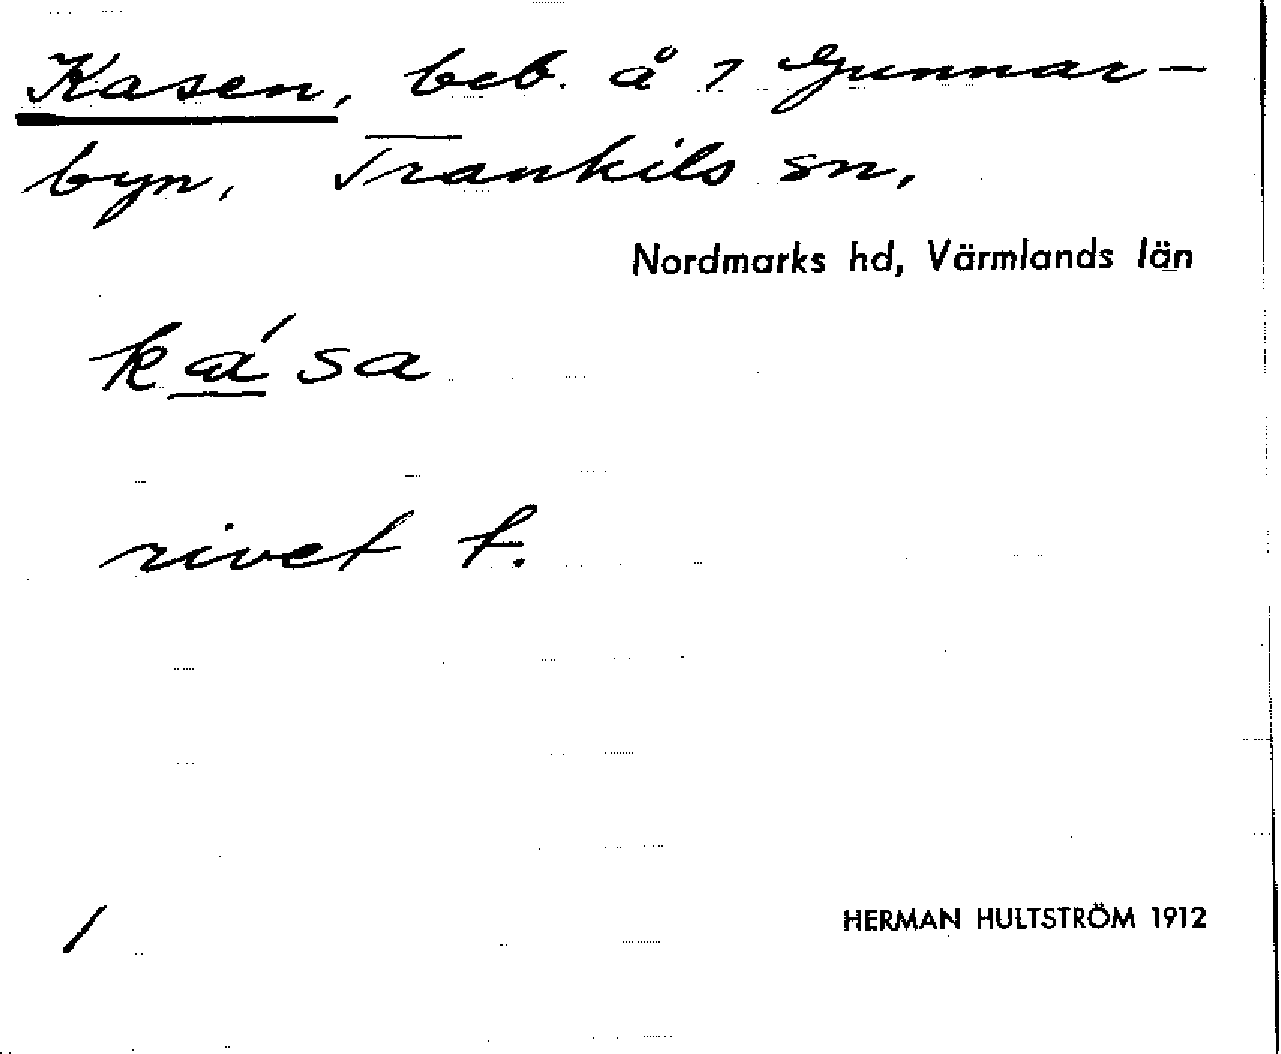 Kasen, beb. å 7 Gunnar-
byn, Trankils sn,
Nordmarks hd, Värmlands län
ká sa
rivet t.
/
HERMAN HULTSTRÖM 1912